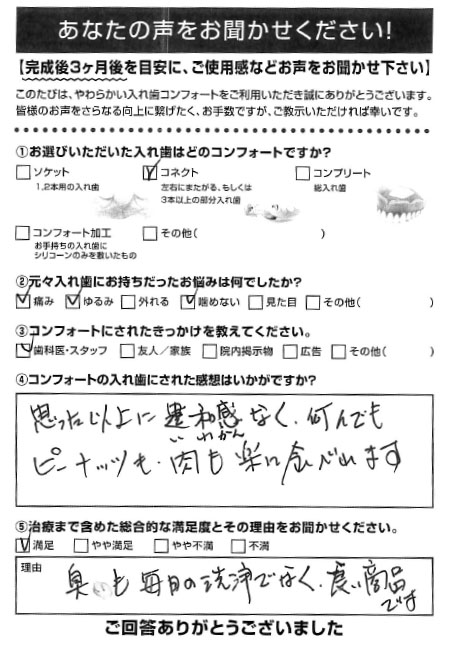 あなたの声をお聞かせください!
【完成後3ヶ月後を目安に、ご使用感などお声をお聞かせ下さい】
このたびは、やわらかい入れ歯コンフォートをご利用いただき誠にありがとうございます。
皆様のお声をさらなる向上に繋げたく、お手数ですが、ご教示いただければ幸いです。
①お選びいただいた入れ歯はどのコンフォートですか?
□ソケット ☑コネクト □コンプリート
1,2本用の入れ歯 左右にまたがる、もしくは 総入れ歯
3本以上の部分入れ歯
□コンフォート加工 □その他( )
お手持ちの入れ歯に
シリコーンのみを敷いたもの
②元々入れ歯にお持ちだったお悩みは何でしたか?
☑痛み ☑ゆるみ □外れる ☑噛めない □見た目 □その他( )
③コンフォートにされたきっかけを教えてください。
☑歯科医・スタッフ □友人/家族 □院内掲示物 □広告 □その他( )
④コンフォートの入れ歯にされた感想はいかがですか?
思った以上に 違和感なく、何んでも
いわかん
ピーナッツも、肉も楽に食べれます
⑤治療まで含めた総合的な満足度とその理由をお聞かせください。
☑満足 □やや満足 □やや不満 □不満
理由
臭いも 毎日の洗浄でなく、良い商品
です
ご回答ありがとうございました